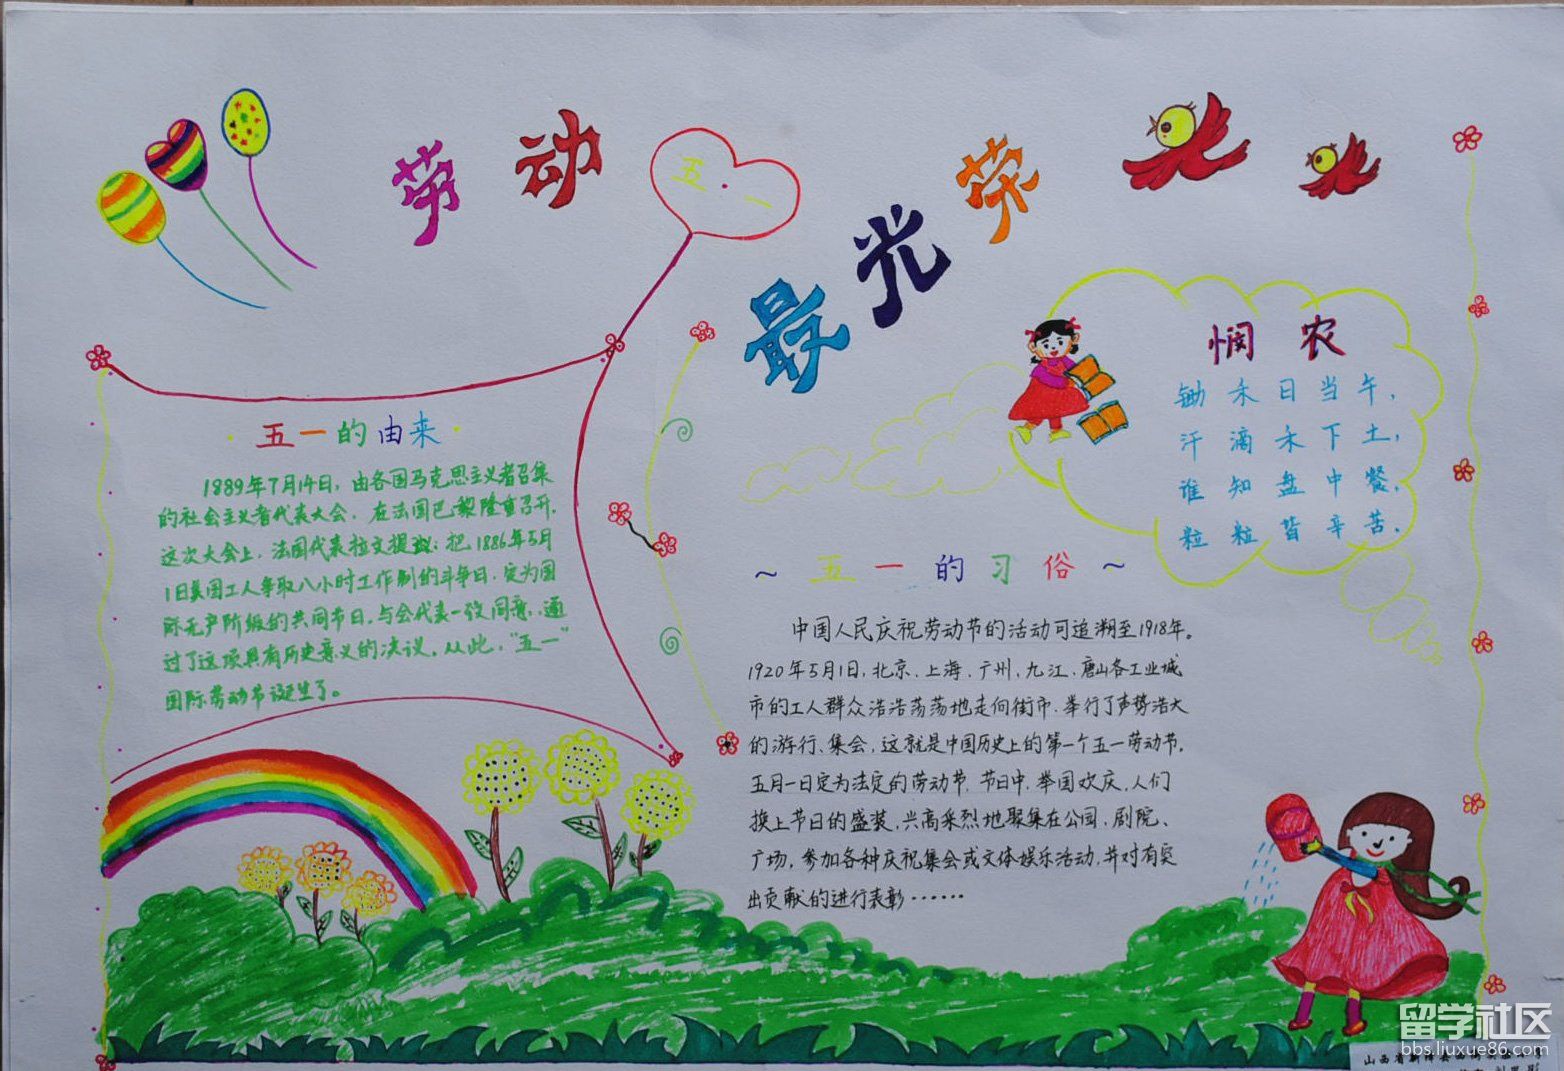 劳动
五·一
最光荣
五一的由来
1889年7月14日，由各国马克思主义者召集
的社会主义者代表大会，在法国巴黎隆重召开.
这次大会上，法国代表拉文提议：把1886年5月
1日美国工人争取八小时工作制的斗争日，定为国
际无产阶级的共同节日，与会代表一致同意，通
过了这项具有历史意义的决议。从此，“五一”
国际劳动节诞生了。
悯农
锄禾日当午，
汗滴禾下土，
谁知盘中餐，
粒粒皆辛苦.
~五一的习俗~
中国人民庆祝劳动节的活动可追溯至1918年。
1920年5月1日，北京、上海、广州、九江、唐山各工业城
市的工人群众浩浩荡荡地走向街市、举行了声势浩大
的游行、集会，这就是中国历史上的第一个五一劳动节。
五月一日定为法定的劳动节，节日中，举国欢庆，人们
换上节日的盛装，兴高采烈地聚集在公园、剧院、
广场，参加各种庆祝集会或文体娱乐活动，并对有突
出贡献的进行表彰……
留学社区
bbs.liuxue86.com
山西省新绛县